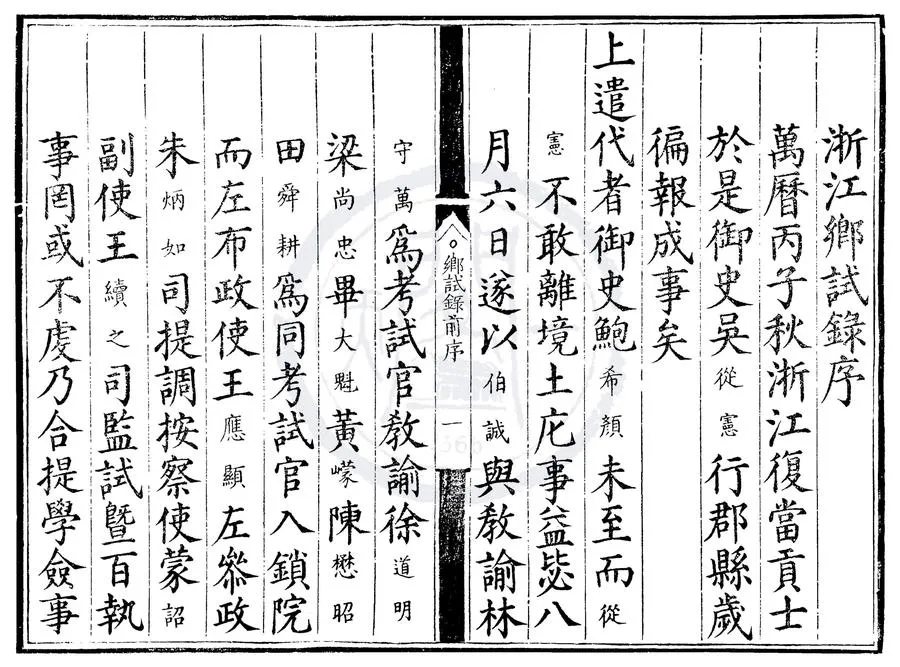 浙江鄉試錄序
萬曆丙子秋浙江復當貢士
於是御史吳從憲行郡縣歲
徧報成事矣
上遣代者御史鮑希顏未至而從
憲不敢離境土庀事益毖八
月六日遂以伯誠與教諭林
鄉試錄前序 一
守萬為考試官教諭徐道明
梁尚忠畢大魁黃嶸陳懋昭
田舜耕為同考試官入鎖院
而左布政使王應顯左叅政
朱炳如司提調按察使蒙詔
副使王續之司監試暨百執
事罔或不虔乃合提學僉事